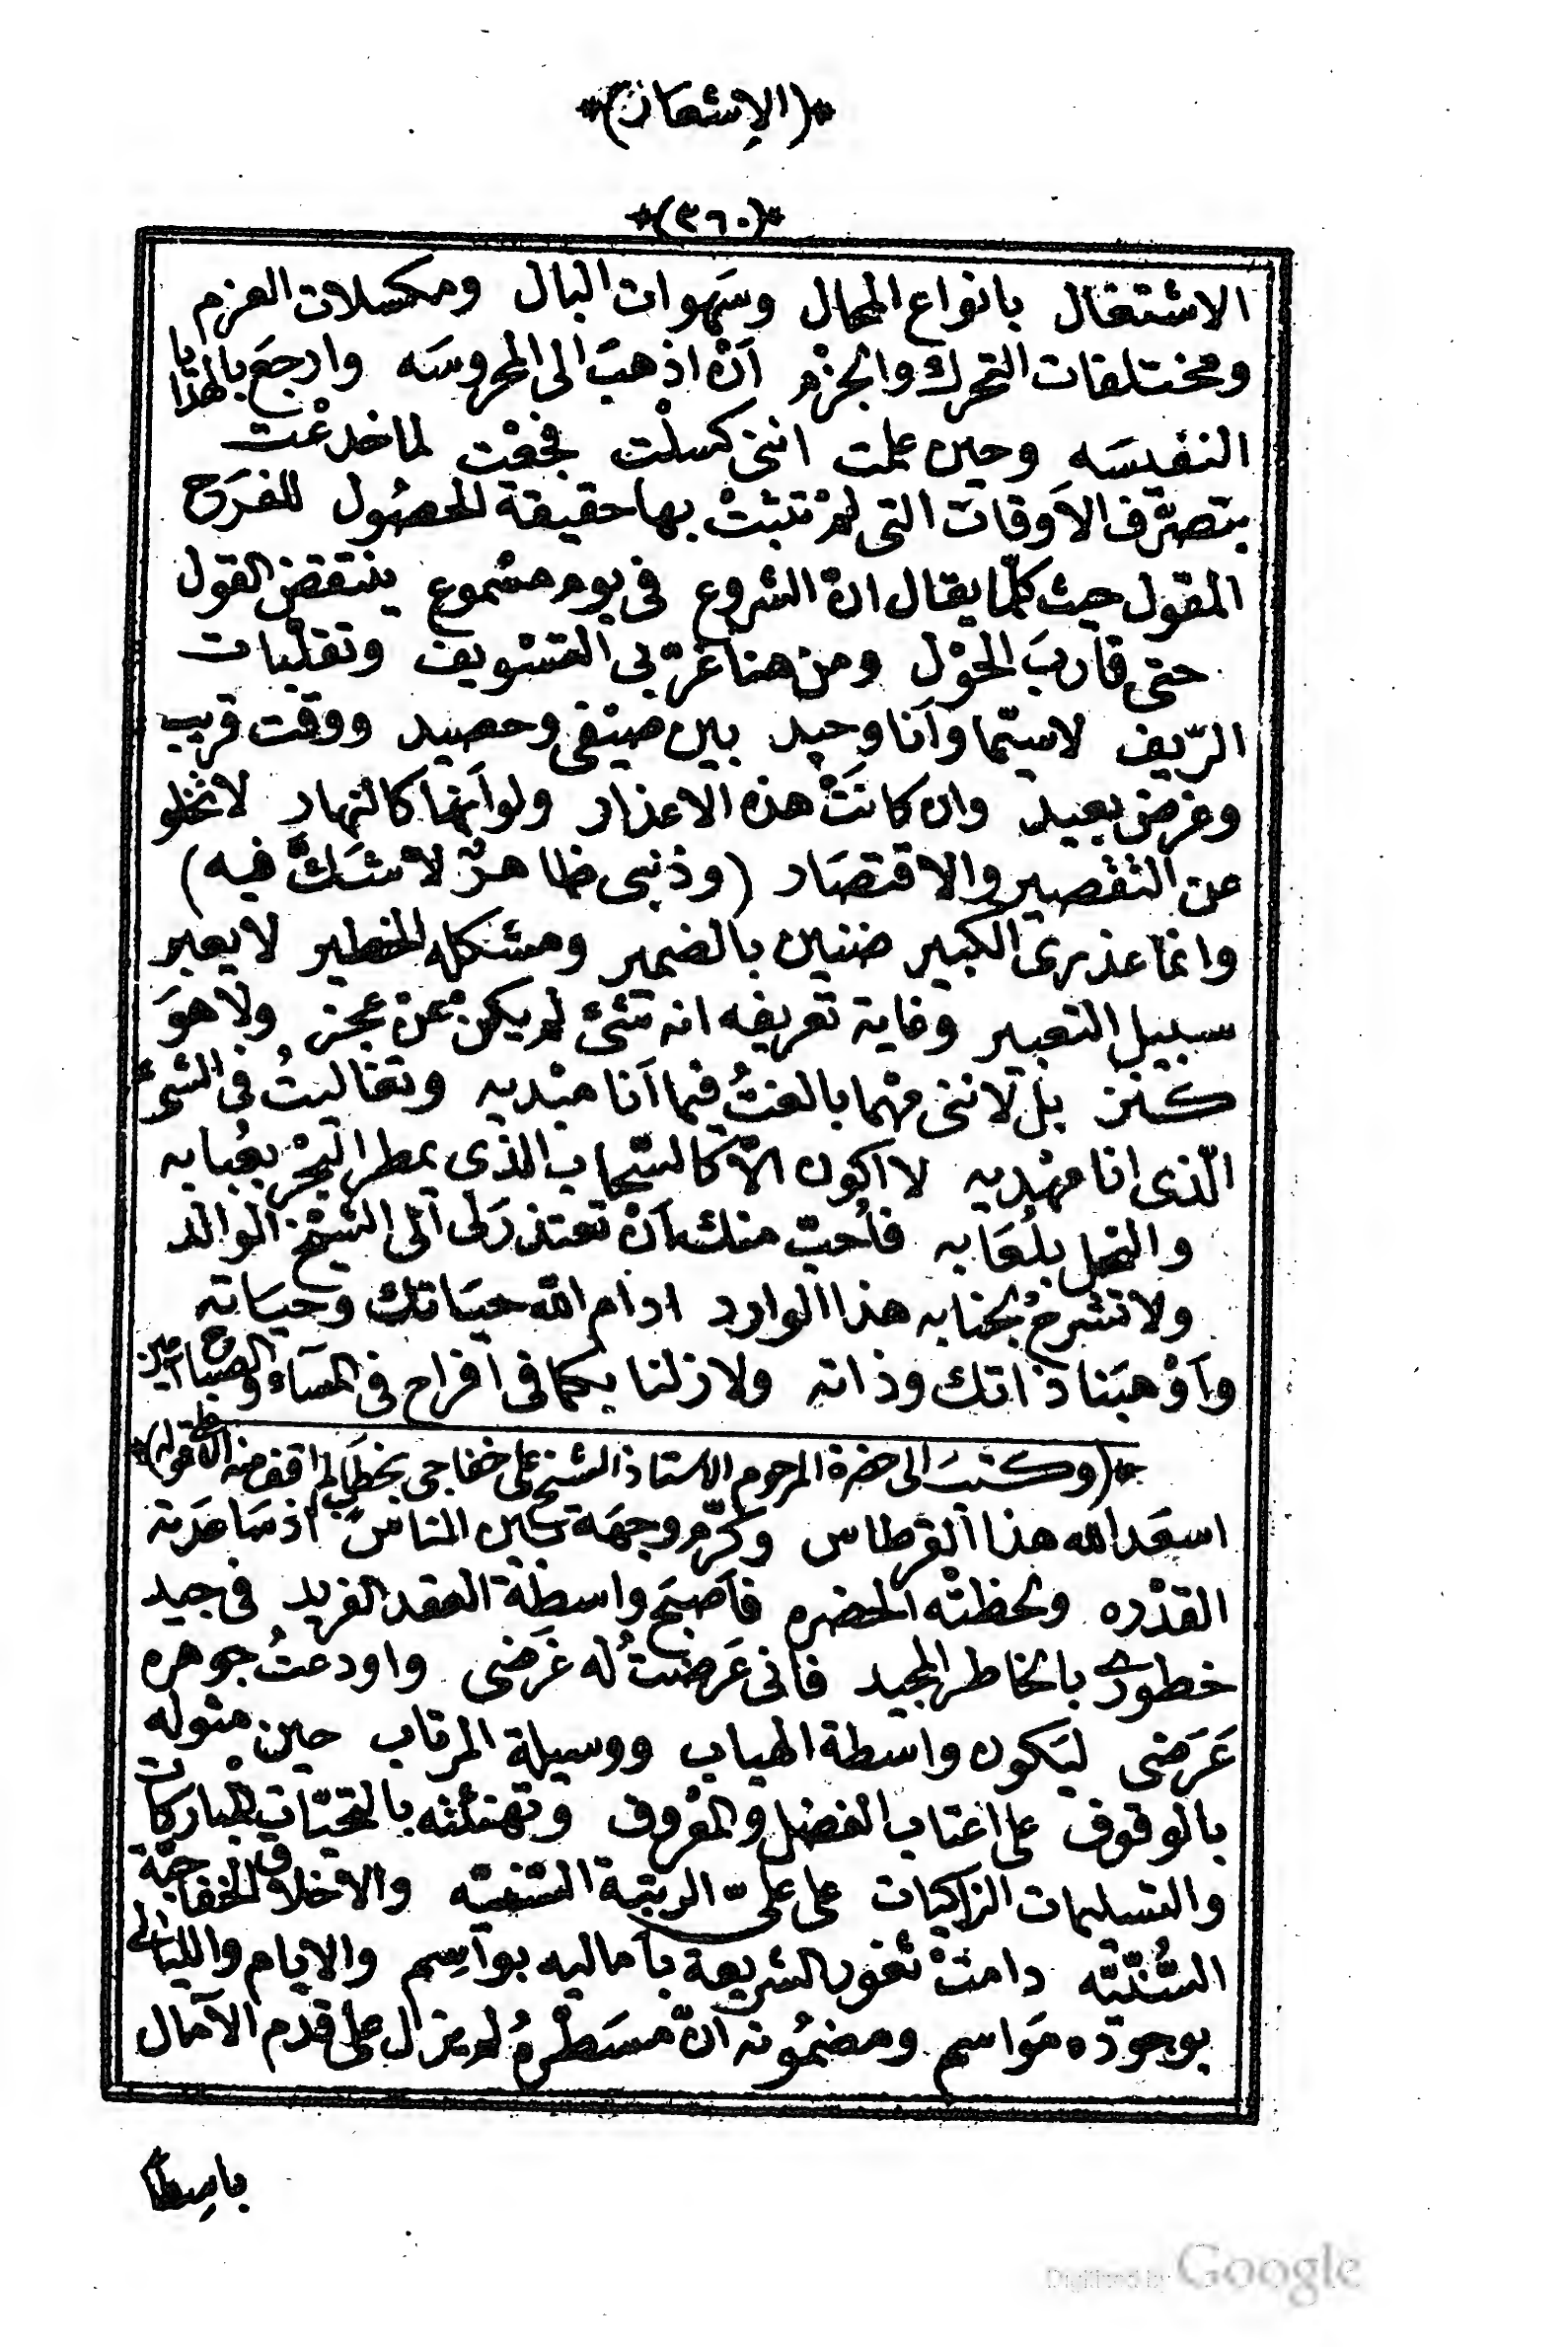 *(الإشعار)*
*(٣٦٠)*
الاشتغال بانواع المحال وسَهوات البال ومكسلات العزم
ومختلفات التحرك والجزْم أنْ اذهبَ الى المحروسَه وارجعَ بالهدايا
النفيسَه وحين علمت اننى كسلْت فجعْت لما خدعْت
بتصرّف الأوقات التى لمْ تثبتْ بها حقيقة الحصُول للفرَح
المقول حيث كلّما يقال انّ الشروع فى يوم مشموع ينتقض القول
حتى قاربَ الحوْل ومن هنا غرّ بى التسْويف وتقلّبات
الرّيف لاسيّما وأنا وحيد بين صيْفى وحصيد ووقت قريب
وغرض بعيد وان كانَتْ هذه الاعذار ولو أنها كالنهار لا تخلو
عن التقْصير والاقتصَار (وذنبى ظاهرٌ لا شكّ فيه)
وانما عذرى الكبير ضنين بالضمير ومشكله الخطير لا يعبر
سبيل التعبير وغاية تعريفه انه شئ لم يكن عنْ عجز ولا هوَ
كنز بل لاننى مهْما بالغتُ فيما أنا مبْديه وتغاليتُ فى الشئ
الّذى انا مهْديه لا اكون الّا كالسّحاب الذى يمطر البحْر بعُبابه
والنحل بلُعَابه فأحبّ منك أنْ تعتذرَ لى الى الشيْخ الوالد
ولا تشرحْ لجنابه هذا الوارد ادام الله حيَاتك وحيَاته
وأوْهبَنا ذاتك وذاته ولا زلنا بكما فى أفراح فى المسآء والصباح آمين
*(وكتبَ الى حضرة المرحوم الاستاذ الشيخ على خفاجى بخطَابٍ لم اقف منه الّا على قوله)*
اسعَد الله هذا القرطاس وكرّم وجهَه بَين الناس اذ سَاعَدَته
القدْره ولحظتْه الحضره فأصْبحَ واسطة العقد الفريد فى جيد
خطورى بالخاطر المجيد فانى عَرضتُ له غَرَضى واودعتُ جوهره
عَرَضى ليَكون واسطة الهياب ووسيلة المرقاب حين مثوله
بالوقوف على اعتاب الفضل والمعْروف وتهنئته بالتحيّات المباركات
والتسليمات الزاكيات على علىّ الرتبة السَّنيّه والاخلاق الخفاجيّة
السُّنّيّه دامتْ ثغور الشريعة بأماليه بوَاسِم والايام والليَالى
بوجوده مَواسم ومضمُونه انّ مسَطّرهُ لم يزل على قدم الآمال
باسِطًا
Digitized by Google